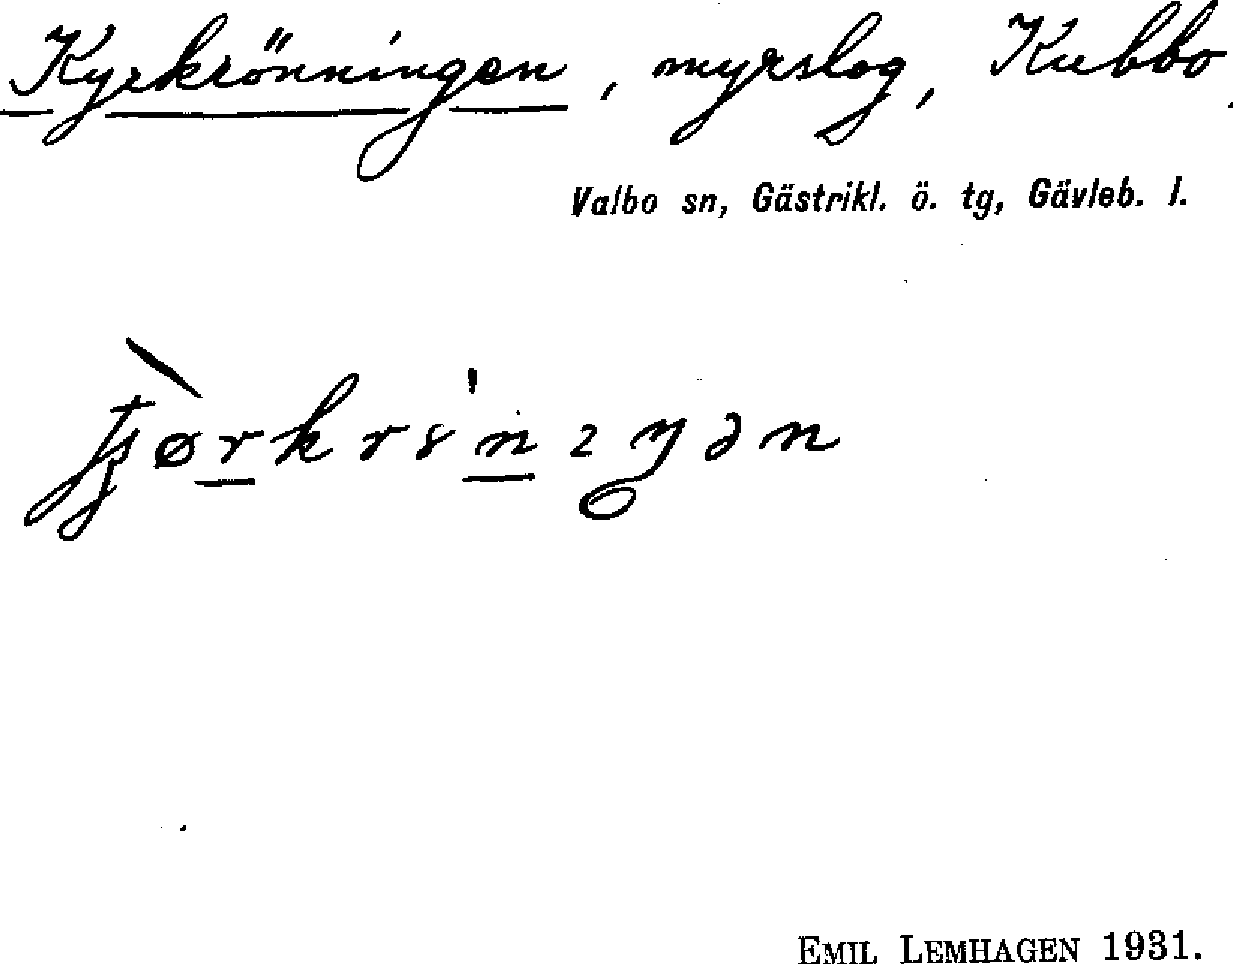 Kyrkrönningen, myrslog, Kubbo.
Valbo sn, Gästrikl. ö. tg, Gävleb. l.
EMIL LEMHAGEN 1931.